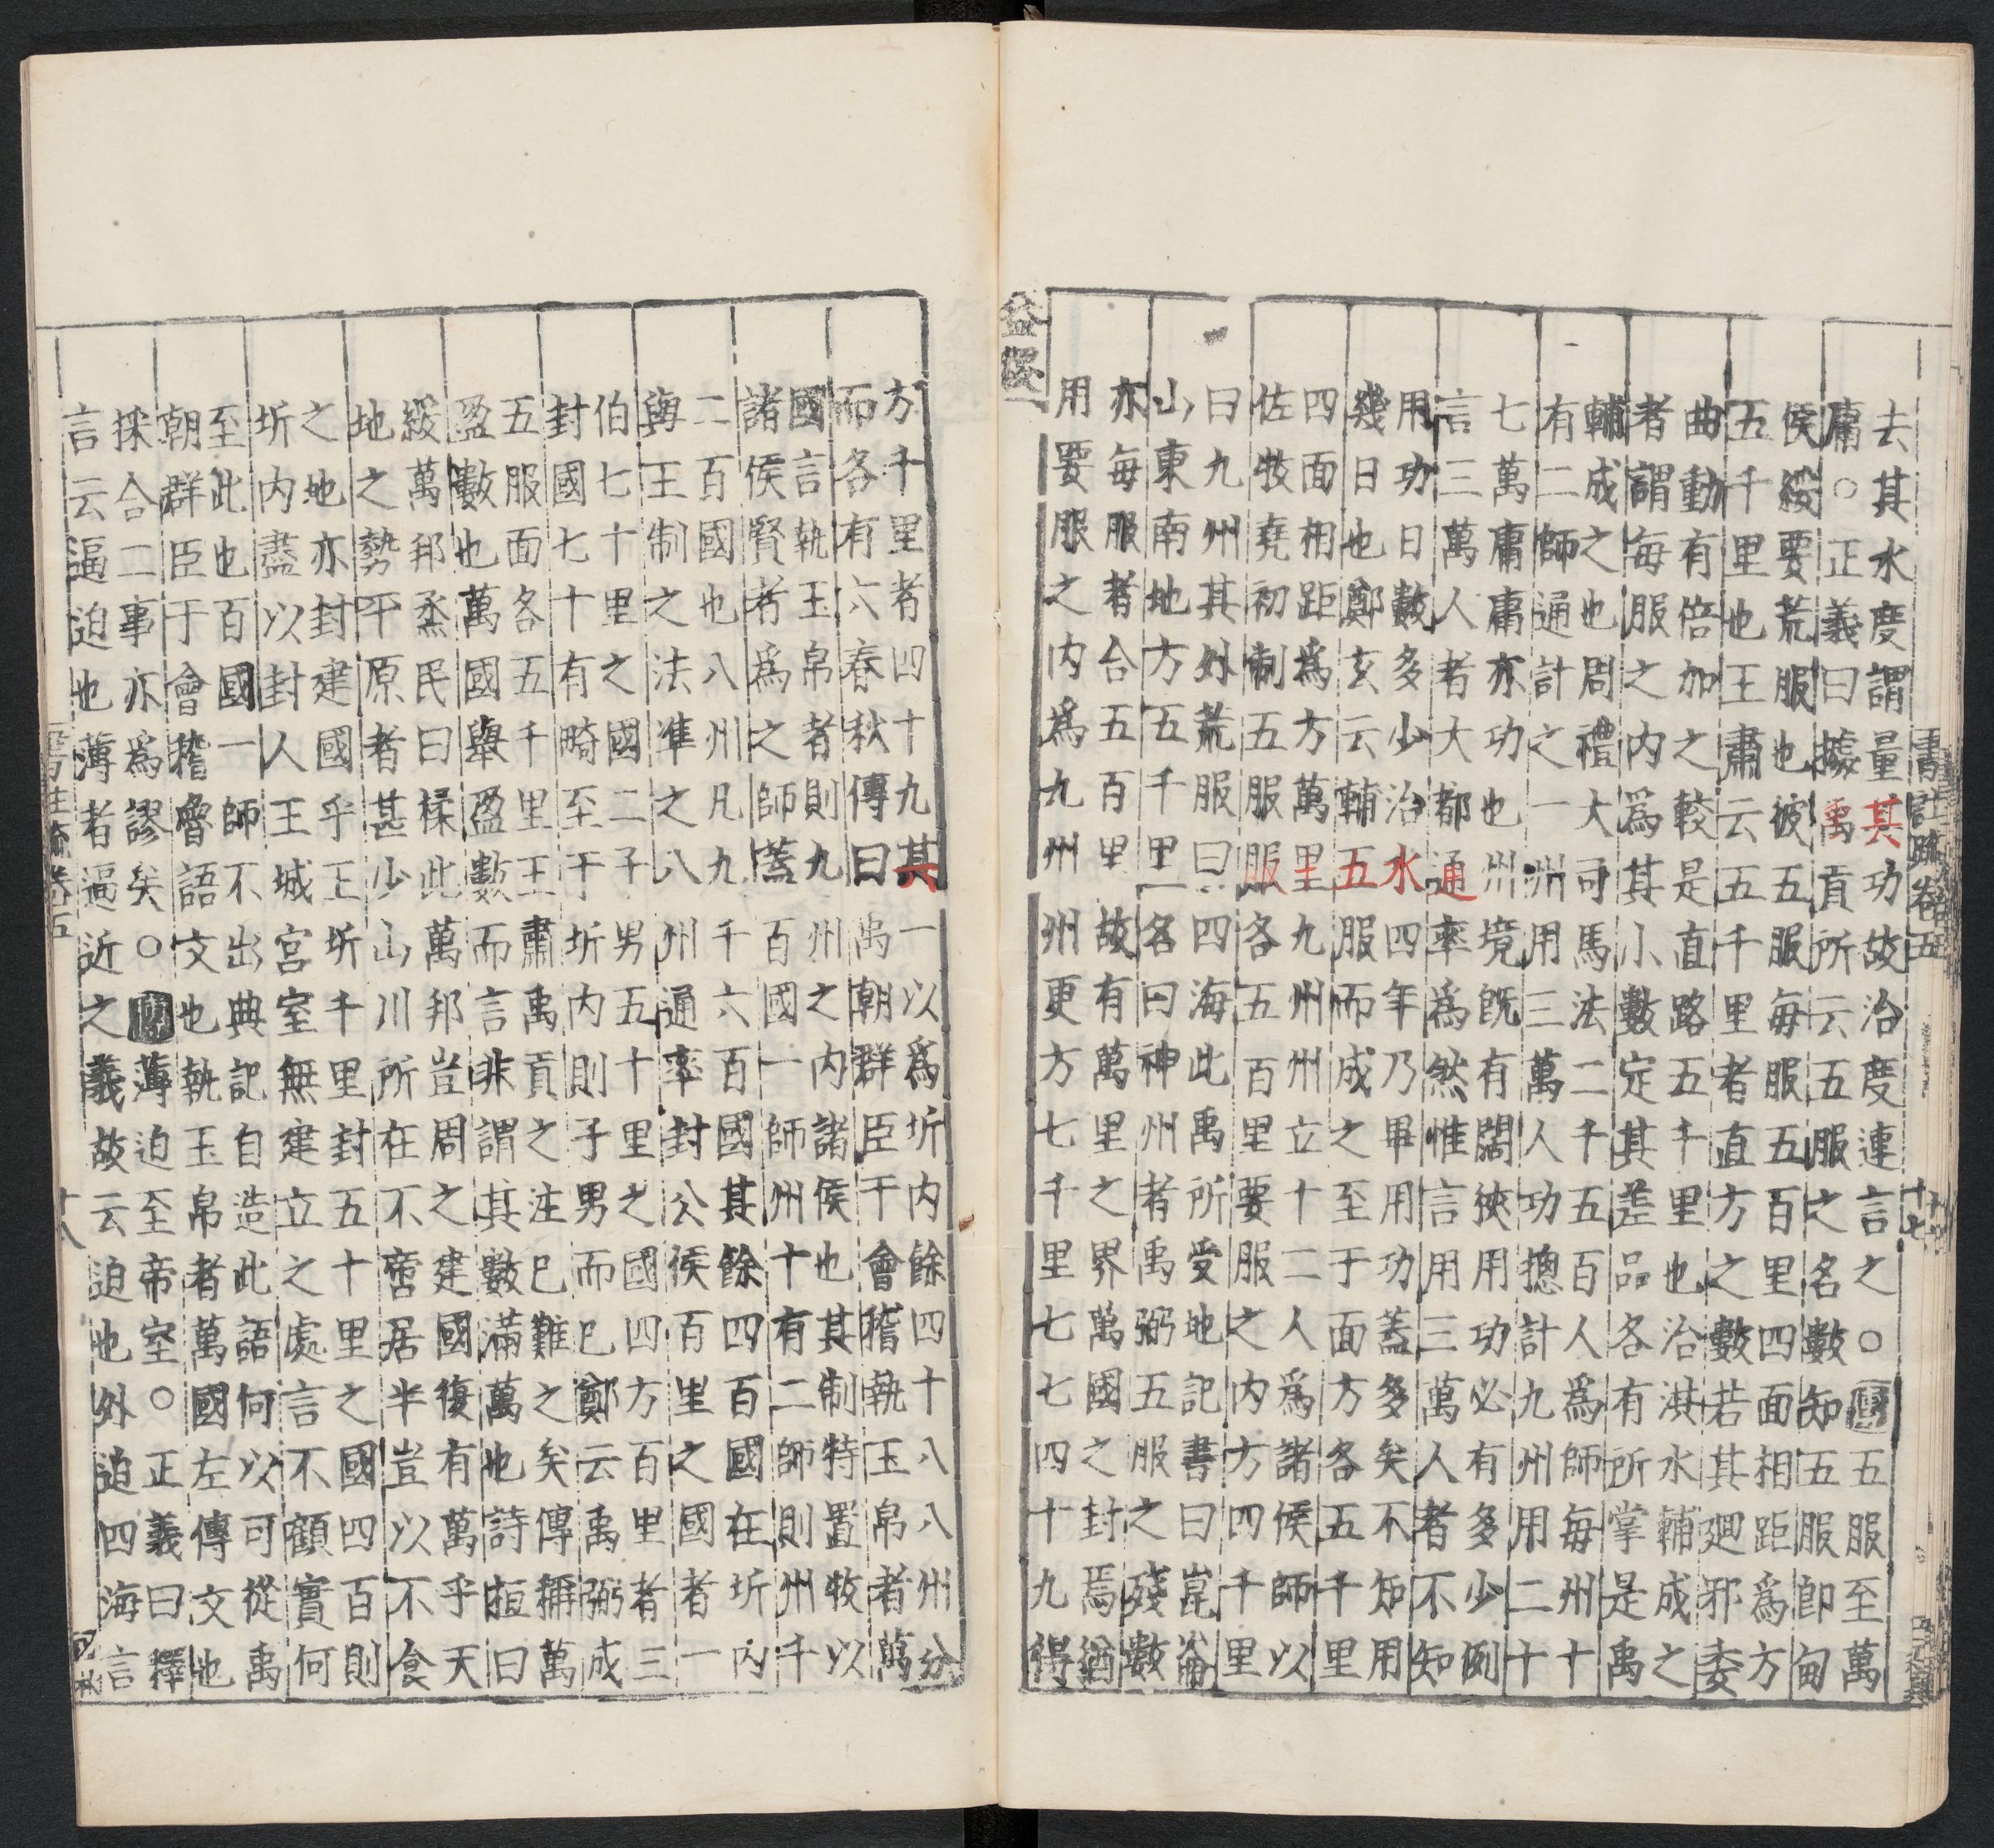 書註疏卷五 十七
去其水度謂量其功故治度連言之○疏五服至萬
庸○正義曰據禹貢所云五服之名數知五服即甸
侯綏要荒服也彼五服每服五百里四面相距爲方
五千里也王肅云五千里者直方之數若其廻邪委
曲動有倍加之較是直路五千里也治洪水輔成之
者謂每服之內爲其小數定其差品各有所掌是禹
輔成之也周禮大司馬法二千五百人爲師每州十
有二師通計之一州用三萬人功摠計九州用二十
七萬庸庸亦功也州境既有闊狹用功必有多少例
言三萬人者大都通率爲然惟言用三萬人者不知
用功日數多少治水四年乃畢用功蓋多矣不知用
幾日也鄭玄云輔五服而成之至于面方各五千里
四面相距爲方萬里九州州立十二人爲諸侯師以
佐牧堯初制五服服各五百里要服之內方四千里
曰九州其外荒服曰四海此禹所受地記書曰崑崙
山東南地方五千里名曰神州者禹弼五服之殘數
亦每服者合五百里故有萬里之界萬國之封焉猶
用要服之內爲九州州更方七千里七七四十九得
益稷
方千里者四十九其一以爲圻內餘四十八八州分
而各有六春秋傳曰禹朝群臣于會稽執玉帛者萬
國言執玉帛者則九州之內諸侯也其制特置牧以
諸侯賢者爲之師蓋百國一師州十有二師則州千
二百國也八州凡九千六百國其餘四百國在圻內
與王制之法準之八州通率封公侯百里之國者一
伯七十里之國二子男五十里之國四方百里者三
封國七十有畸至于圻內則子男而已鄭云禹弼成
五服面各五千里王肅禹貢之注已難之矣傳稱萬
盈數也萬國舉盈數而言非謂其數滿萬也詩桓曰
綏萬邦烝民曰揉此萬邦豈周之建國復有萬乎天
地之勢平原者甚少山川所在不啻居半豈以不食
之地亦封建國乎王圻千里封五十里之國四百則
圻內盡以封人王城宮室無建立之處言不顧實何
至此也百國一師不出典記自造此語何以可從禹
朝群臣于會稽魯語文也執玉帛者萬國左傳文也
採合二事亦爲謬矣○疏薄迫至帝室○正義曰釋
言云逼迫也薄者逼近之義故云迫也外迫四海言
十八